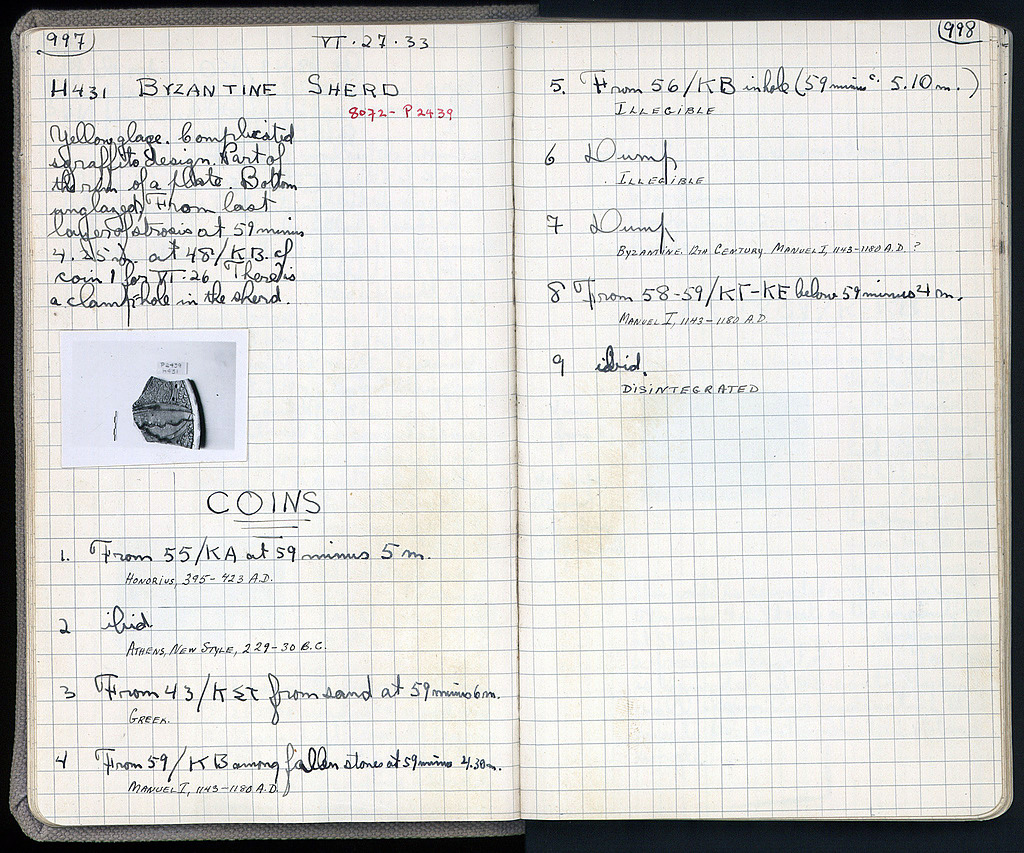 997
VI·27·33
H431 BYZANTINE SHERD
8072 - P 2439
Yellow glaze. Complicated
sgraffito design. Part of
the rim of a plate. Bottom
unglazed. From last
layer of strosis at 59 minus
4.25 m. at 48/KB. cf
coin 1 for VI·26. There is
a clamp-hole in the sherd.
P2439
H431
COINS
1. From 55/KA at 59 minus 5 m.
HONORIUS, 395-423 A.D.
2 ibid.
ATHENS, NEW STYLE, 229-30 B.C.
3 From 43/K from sand at 59 minus 6 m.
GREEK.
4 From 59/KB among fallen stones at 59 minus 4.30 m.
MANUEL I, 1143-1180 A.D.
998
5. From 56/KB in hole (59 minus c. 5.10 m.)
ILLEGIBLE
6 Dump
ILLEGIBLE
7 Dump
BYZANTINE. 12TH CENTURY. MANUEL I, 1143-1180 A.D. ?
8 From 58-59/KΓ-KE below 59 minus 4 m.
MANUEL I, 1143-1180 A.D.
9 ibid.
DISINTEGRATED